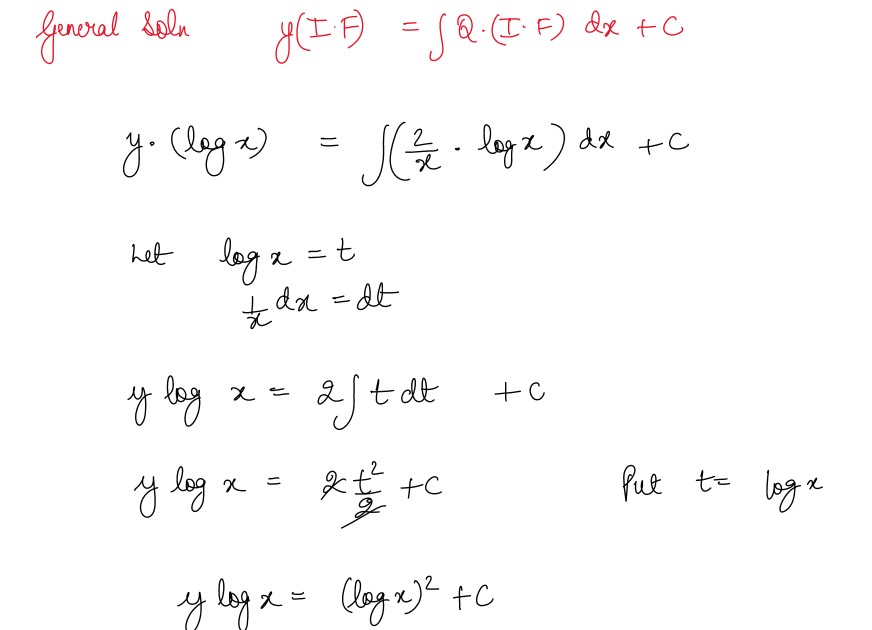 General Soln y(I·F) = ∫Q·(I·F) dx + C
y·(log x) = ∫(2/x · log x) dx + C
Let log x = t
1/x dx = dt
y log x = 2∫t dt + C
y log x = 2 t²/2 + C Put t = log x
y log x = (log x)² + C